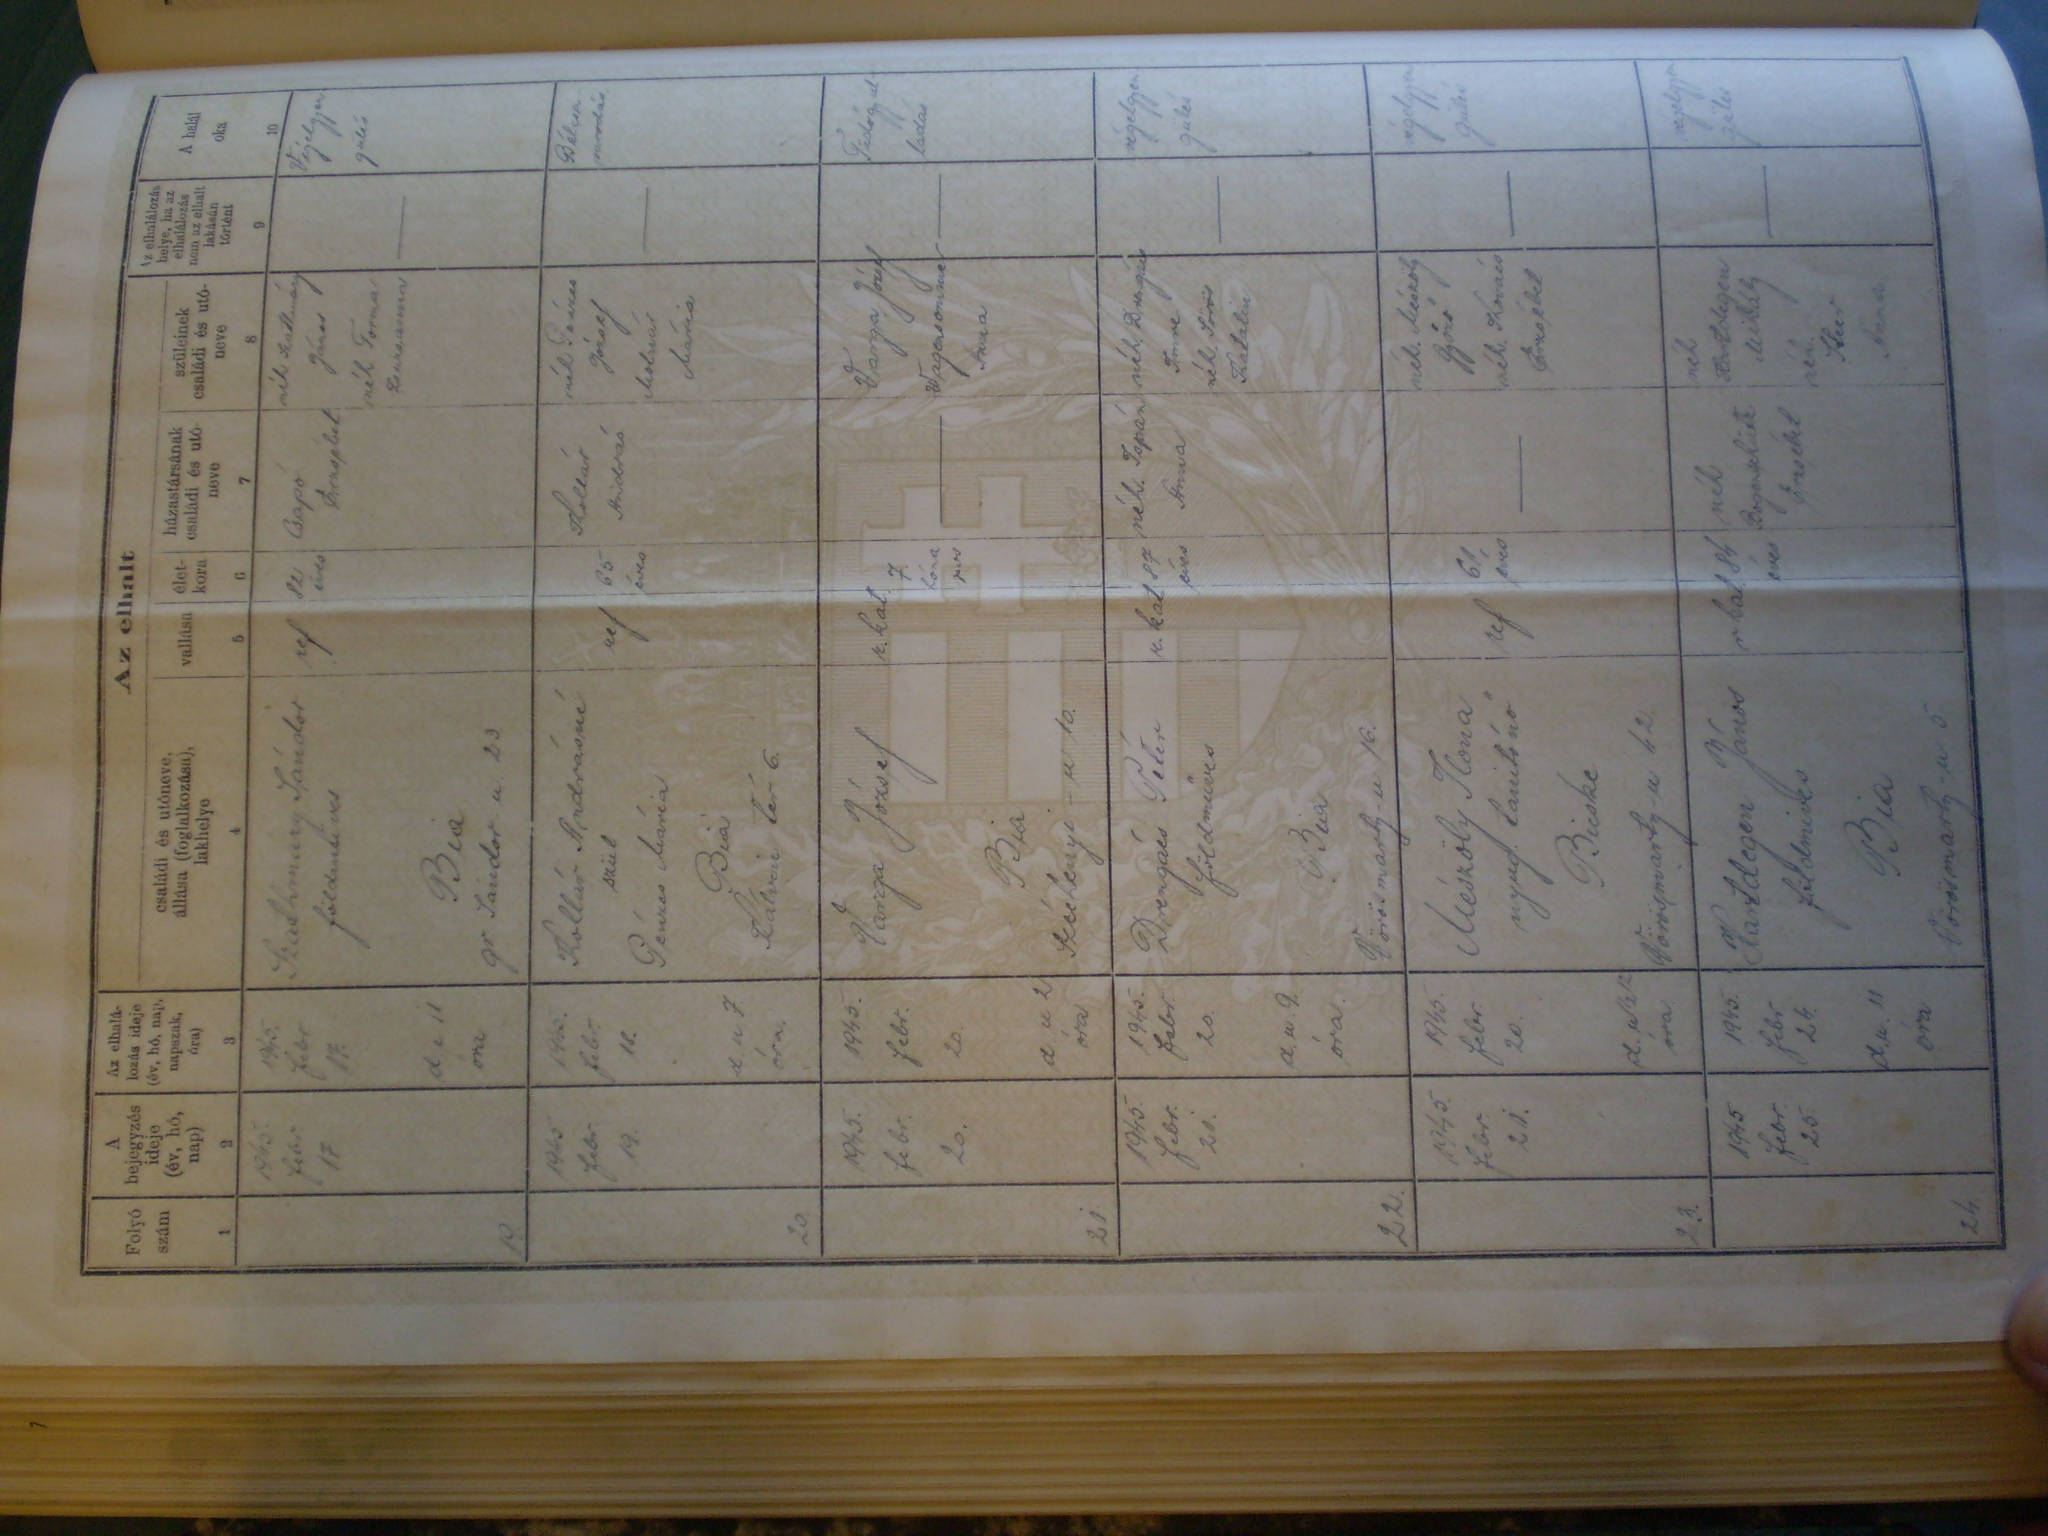 Az elhalt
Folyó
szám
A
bejegyzés
ideje
(év, hó,
nap)
Az elhalá-
lozás ideje
(év, hó, nap,
napszak,
óra)
családi és utóneve,
állása (foglalkozása),
lakhelye
vallása
élet-
kora
házastársának
családi és utó-
neve
szüleinek
családi és utó-
neve
Az elhalálozás
helye, ha az
elhalálozás
nem az elhalt
lakásán
történt
A halál
oka
1
2
3
4
5
6
7
8
9
10
19.
1945.
febr
17
1945.
febr
17.
d. e 11
óra
Szathmáry Sándor
földmíves
Bia
gr. Sándor-u. 23
ref
éves
Csapó
Erzsébet
néh Szathmáry
János
néh Torma
Zsuzsanna
Végelgyen
gülés
20.
1945
febr.
19.
1945.
febr
18.
d. u 7
óra.
Kollár Andrásné
szül
Pénzes Mária
Bia
Kálvin tér 6.
ref
65
éves
Kollár
András
néh Pénzes
József
Molnár
Mária
Bélcsa-
varodás.
21
1945.
febr.
20.
1945.
febr.
20.
d. u 2
óra
Varga József
Bia
Széchenyi-u 10.
r. kat.
7.
hóna
pos
Varga József
Wagensommer
Anna
Tüdőgyul-
ladás
22.
1945.
febr.
21.
1945.
febr.
20.
d. u. 9.
óra.
Drengács Péter
földmíves
Bia
Vörösmarty-u 16.
r. kat
87
éves
néh. Ispán
Anna
néh Drengács
Imre
néh
Katalin
végelgyen
gülés
23.
1945.
febr.
21.
1945.
febr.
20.
óra
Mészöly Ilona
nyug. tanítónő
Bicske
Vörösmarty-u 42.
ref
61
éves
néh. Mészöly
Győző
néh. Kovács
Erzsébet
végelgyen
gülés
24.
1945
febr.
25.
1945.
febr
24.
d. u. 11
óra
Hartdegen János
földmíves
Bia
Vörösmarty-u 5
r kat
84
éves
néh
Erzsébet
néh
Hartdegen
Mihály
néh.
Anna
végelgyen
gülés